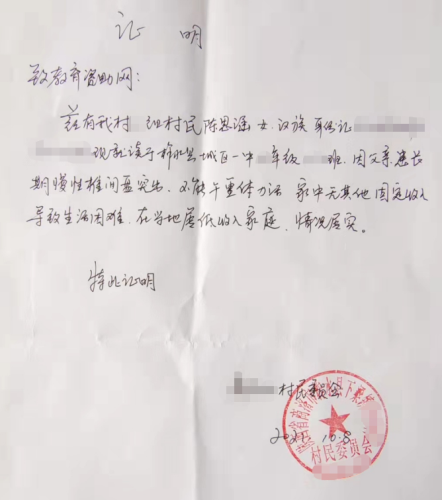 证 明
致教育资助网：
兹有我村 组村民陈思涵 女 汉族 身份证
现就读于柞水县城区一中 年级 班. 因父亲患长
期慢性椎间盘突出. 不能干重体力活 家中无其他固定收入
导致生活困难. 在当地属低收入家庭. 情况属实。
特此证明
村民委员会
10.8
村民委员会